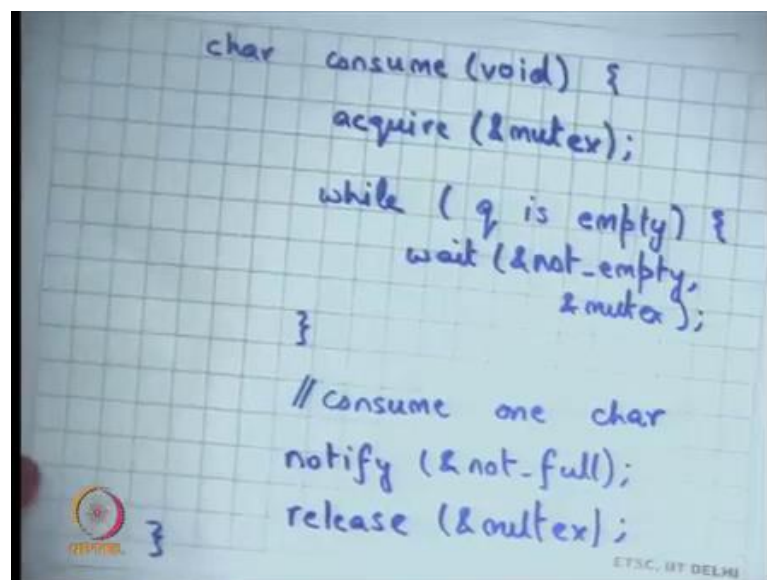 char consume (void) {
acquire (&mutex);
while ( q is empty) {
wait (&not_empty,
&mutex);
}
// consume one char
notify (&not_full);
release (&mutex);
}
ETSC, IIT DELHI